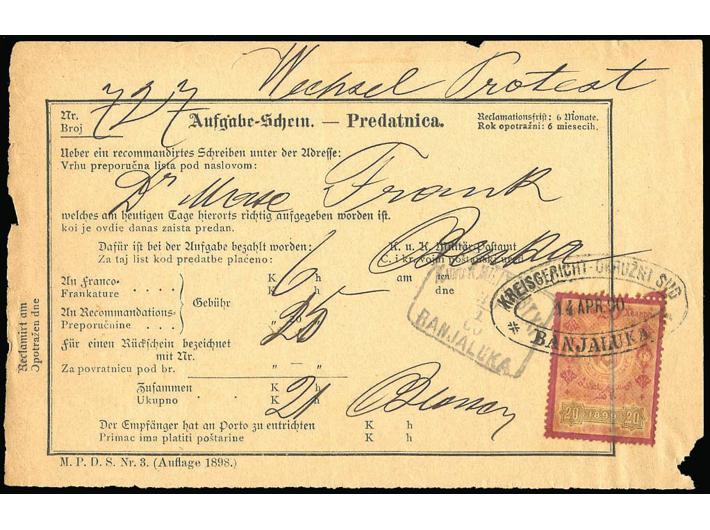 Wechsel Protest
Nr.
Broj 727
Aufgabe-Schein. — Predatnica.
Reclamationsfrist: 6 Monate.
Rok opotražni: 6 miesecih.
Ueber ein recommandirtes Schreiben unter der Adresse:
Vrhu preporučna lista pod naslovom:
Dr Frank
welches am heutigen Tage hierorts richtig aufgegeben worden ist.
koi je ovdie danas zaista predan.
Dafür ist bei der Aufgabe bezahlt worden:
Za taj list kod predatbe plaćeno:
K. u. K. Militär-Postamt
C. i kr. vojni poštanski ured
An Franco-
Frankature
Gebühr
K 6 h
" "
am ten
dne
An Recommandations-
Preporučnine
K 25 h
" "
Für einen Rückschein bezeichnet
mit Nr.
Za povratnicu pod br.
" "
Zusammen K h
Ukupno K h
Der Empfänger hat an Porto zu entrichten K h
Primac ima platiti poštarine K h
M. P. D. S. Nr. 3. (Auflage 1898.)
Reclamirt am
Opotražen dne
BANJALUKA
KREISGERICHT-OKRUŽNI SUD
14 APR. 00
BANJALUKA
20 1899 20